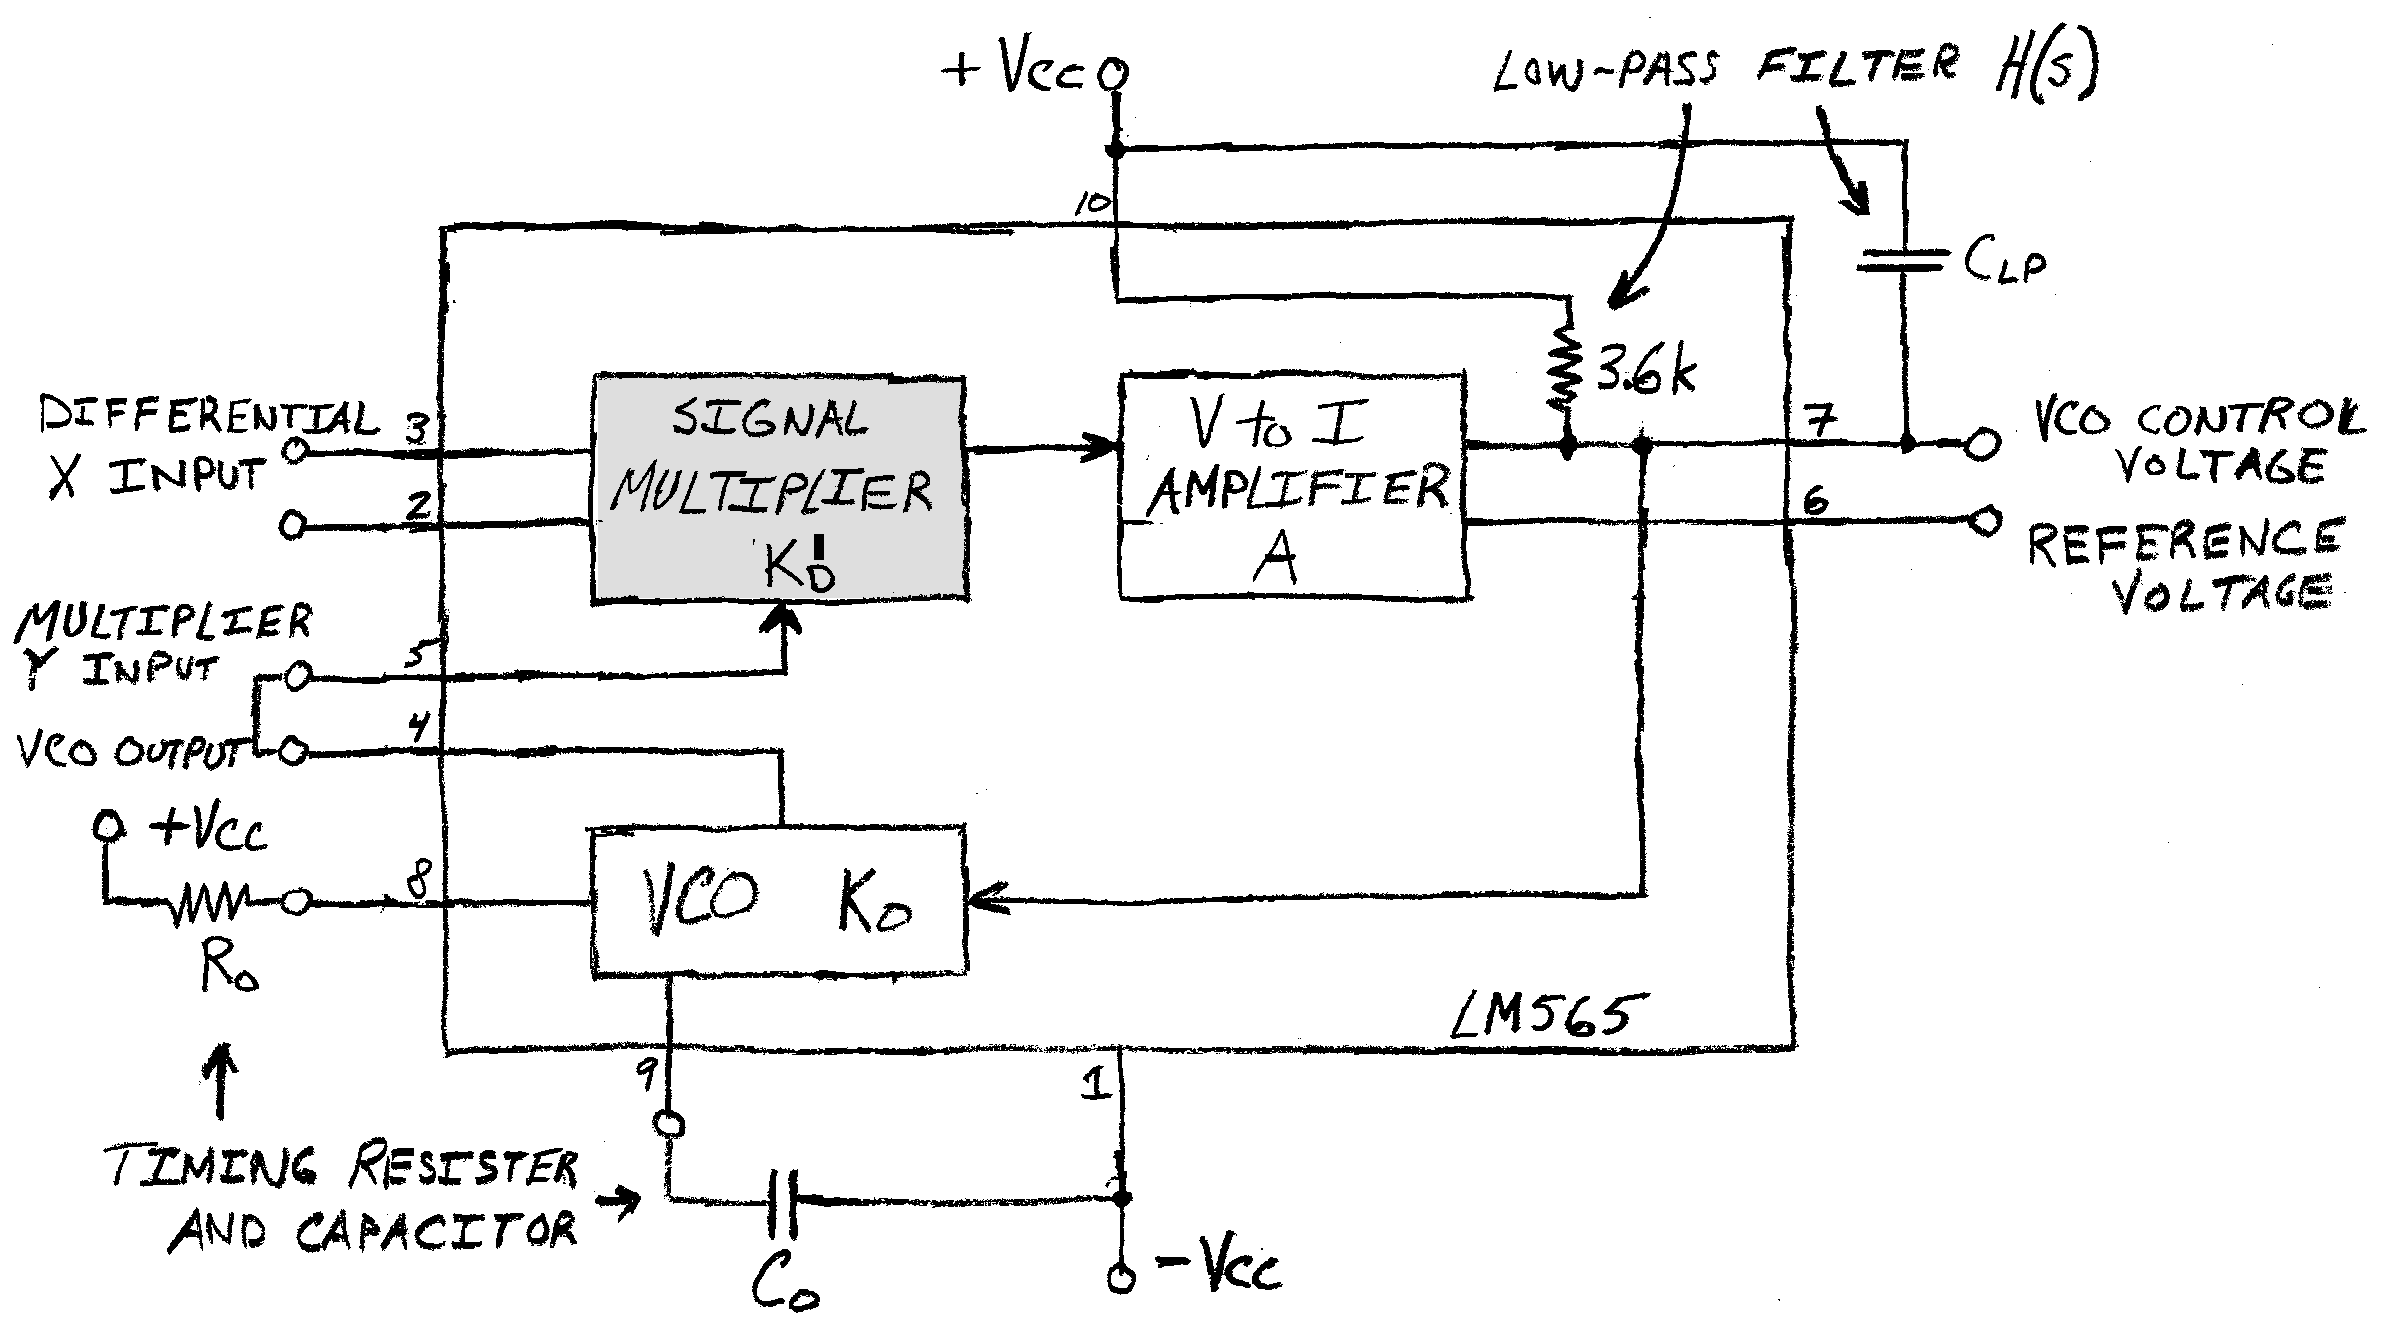 + Vcc
LOW-PASS FILTER H(s)
10
CLP
3.6k
DIFFERENTIAL
X INPUT
3
2
SIGNAL
MULTIPLIER
KD'
V to I
AMPLIFIER
A
7
VCO CONTROL
VOLTAGE
6
REFERENCE
VOLTAGE
MULTIPLIER
Y INPUT
5
4
VCO OUTPUT
+Vcc
8
Ro
VCO Ko
LM565
9
1
TIMING RESISTER
AND CAPACITOR
Co
-Vcc